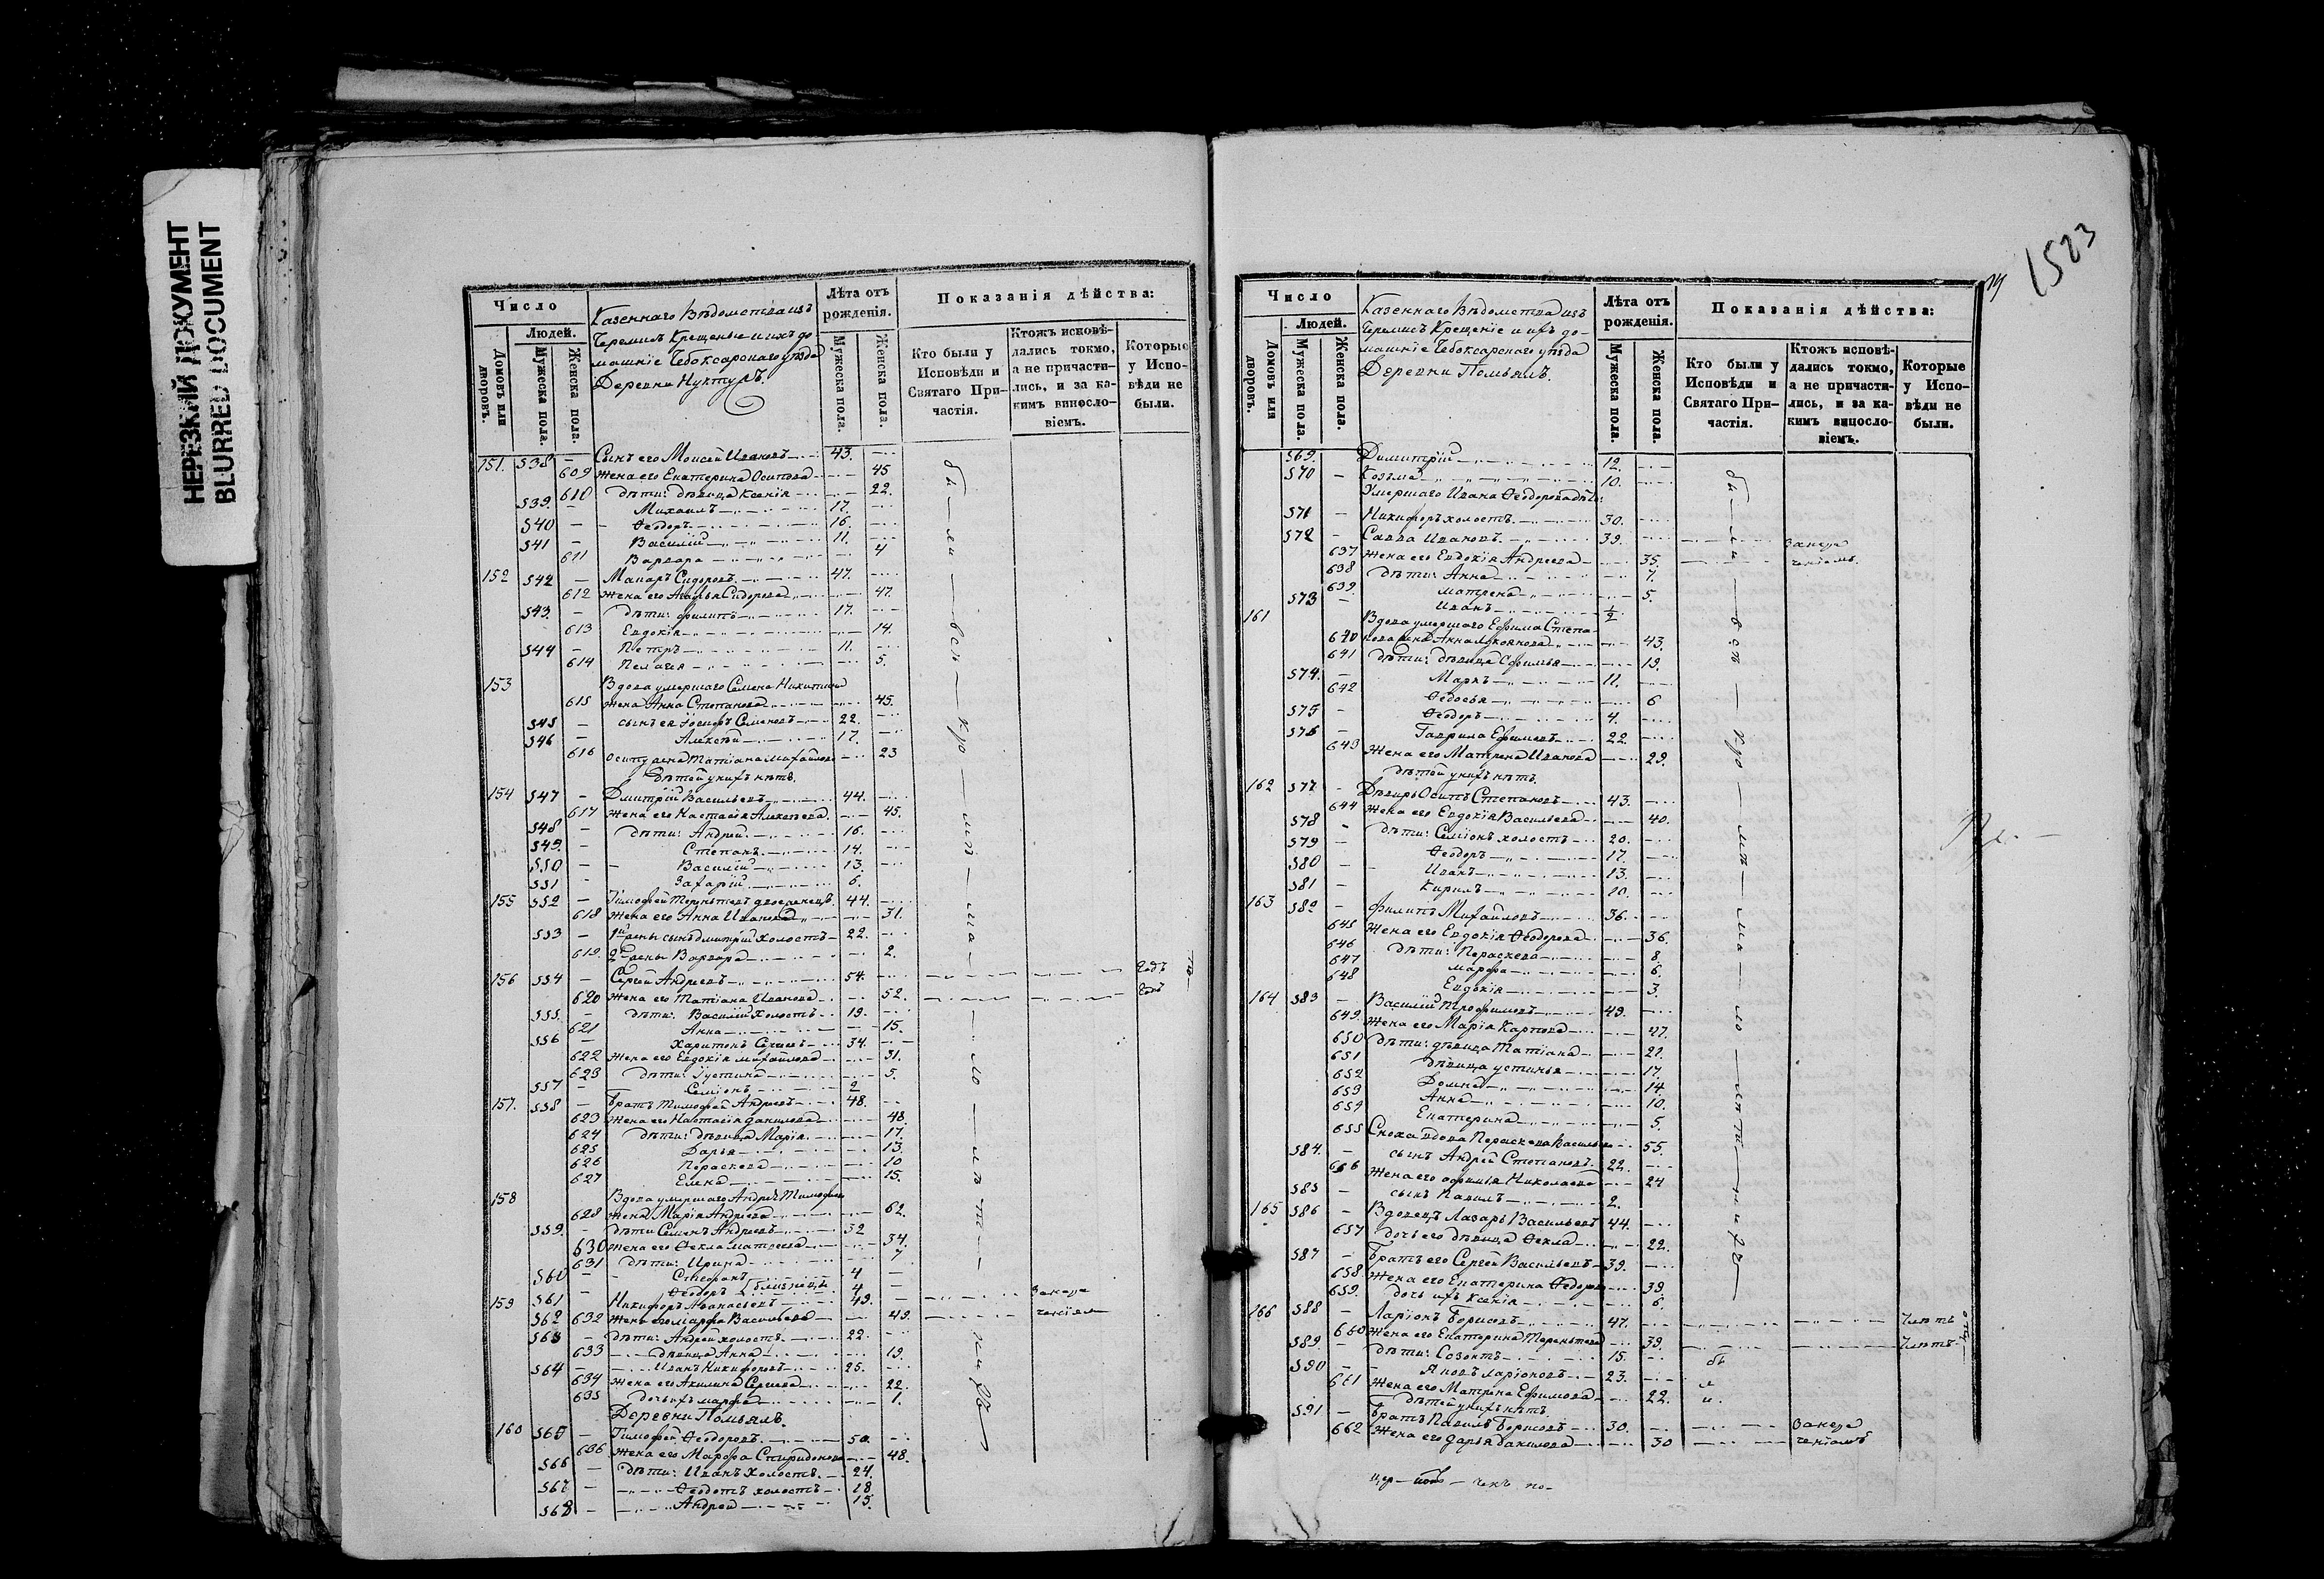 НЕРЕЗКИЙ ДОКУМЕНТ
BLURRED DOCUMENT
Число
Людей.
Домовъ или дворовъ.
Мужеска пола.
Женска пола.
Казеннаго Вѣдомства изъ
Черемисъ Крещеные и ихъ до
машніе Чебоксарскаго уѣзда
Деревни Нуктужъ.
Лѣта отъ рожденія.
Мужеска пола.
Женска пола.
Показанія дѣйства:
Кто были у Исповѣди и Святаго Причастія.
Ктожъ исповѣдались токмо, а не причастились, и за какимъ винословіемъ.
Которые у Исповѣди не были.
151. 538 — Сынъ его Моисей Ивановъ 43.
609 Жена его Екатерина Осипова 45
610 дѣти: дѣвица Ксенія 22.
539. — Михаилъ 17.
540 — Ѳеодоръ 16.
541 — Василій 11.
611 Варвара 4
152 542 — Макаръ Сидоровъ 47.
612 Жена его Агафья Сидорова 47.
543. — дѣти: Филипъ 17.
613 Евдокія 14.
544 — Петръ 11.
614 Пелагея 5.
153 Вдова умершаго Семена Никитина
615 жена Анна Степанова 45.
545 — сынъ ея Іосифъ Семеновъ 22.
546 — Алексѣй 17.
616 Осипу жена Татіана Михайлова 23
дѣтей у нихъ нѣтъ.
154 547 — Дмитрій Васильевъ 44.
617 Жена его Настасія Алексѣева 45.
548 — дѣти: Андрей 16.
549. — Степанъ 14.
550 — Василій 13.
551 — Захарій 6.
155 552 — Тимофей Терентьевъ двоеженецъ 44.
618 Жена его Анна Иванова 31.
553 — 1й жены сынъ Дмитрій холостъ 22.
619. 2й жены Варвара 2.
156 554 — Сергѣй Андреевъ 54. Годъ
620 Жена его Татіана Иванова 52. Годъ
555. — дѣти: Василій холостъ 19.
621 Анна 15.
556 — Харитонъ Сергѣевъ 34.
622 Жена его Евдокія Михайлова 31.
623 дѣти: Іустина 5.
557 — Семіонъ 2
157. 558 — Братъ Тимофей Андреевъ 48.
623 Жена его Настасія Данилова 48.
624 дѣти: дѣвица Марія 17.
625 Дарья 13.
626 Параскева 10
627 Елена 15.
158 Вдова умершаго Андрея Тимофеева
628 жена Марія Андреева 62.
559. — дѣти Семенъ Андреевъ 32
630 Жена его Ѳекла Матвеева 34.
631 дѣти: Ирина 7
560 — Стефанъ 4
561 — Ѳеодоръ близнецы 4
159 562 Никифоръ Аѳанасьевъ 49. За неза
632 Жена его Марфа Васильева 49. ченіям
563 — дѣти: Андрей холостъ 22.
633 дѣвица Анна 19.
564 — Иванъ Никифоровъ 25.
634 Жена его Акилина Сергѣева 22.
635 дочь ихъ Марфа 1.
Деревни Помьялъ.
160 565 — Тимофей Ѳеодоровъ 50.
636 Жена его Марфа Спиридонова 48.
566 — дѣти: Иванъ холостъ 24.
567 — Ѳеодотъ холостъ 18
568 — Андрей 15.
1523
Число
Людей.
Домовъ или дворовъ.
Мужеска пола.
Женска пола.
Казеннаго Вѣдомства изъ
Черемисъ Крещеніе и ихъ до-
машніе Чебоксарскаго уѣзда
Деревни Помьялъ.
Лѣта отъ рожденія.
Мужеска пола.
Женска пола.
Показанія дѣйства:
Кто были у Исповѣди и Святаго Причастія.
Ктожъ исповѣдались токмо, а не причастились, и за какимъ винословіемъ.
Которые у Исповѣди не были.
569. Димитрій 12.
570 — Козьма 10.
Умершаго Ивана Ѳеодорова дѣти:
571 — Никифоръ холостъ 30.
572 — Савва Ивановъ 39. За неза
637 Жена его Евдокія Андреева 35. ченіемъ
638 дѣти: Анна 7.
639. Матрена 5.
573 — Иванъ 1/2
161 Вдова умершаго Ефима Степа-
640 нова жена Анна Лукоянова 43.
641 дѣти: дѣвица Софилья 19.
574. — Маркъ 11.
642 Ѳедосья 6
575 — Ѳеодоръ 4.
576 — Гаврила Ефимовъ 22.
643 Жена его Матрена Иванова 29.
дѣтей у нихъ нѣтъ.
162 577 — Деверь Осипъ Степановъ 43.
644 Жена его Евдокія Васильева 40.
578 — дѣти: Семіонъ холостъ 20.
579 — Ѳеодоръ 17.
580 — Иванъ 13.
581 — Кирилъ 10.
163 582 — Филипъ Михайловъ 36.
645 Жена его Евдокія Ѳеодорова 36.
646 дѣти: Параскева 8.
647 Марфа 6.
648 Евдокія 3.
164 583 — Василій Трофимовъ 49.
649. Жена его Марія Карпова 47.
650 дѣти: дѣвица Татіана 21.
651 дѣвица Устинья 17.
652 Домна 14.
653 Анна 10.
654 Екатерина 5.
655 Сноха вдова Параскева Васильева 55.
584. — сынъ Андрей Степановъ 22.
656 Жена его Софилія Николаева 24
585 — сынъ Павилъ 2.
165 586 — Вдовецъ Лазарь Васильевъ 44.
657 дочь его дѣвица Ѳекла 22.
587 — Братъ его Сергѣй Васильевъ 39.
658. Жена его Екатерина Ѳедорова 39.
659. дочь ихъ Ксенія 6.
166 588 — Ларіонъ Борисовъ 47.
660 Жена его Екатерина Терентьева 39.
589. — дѣти: Созонтъ 15.
590 — Яковъ Ларіоновъ 23.
661 Жена его Матрена Ефимова 22.
дѣтей у нихъ нѣтъ.
591 — Братъ Павилъ Борисовъ 30. За неза
662 Жена его Дарья Данилова 30 ченіемъ